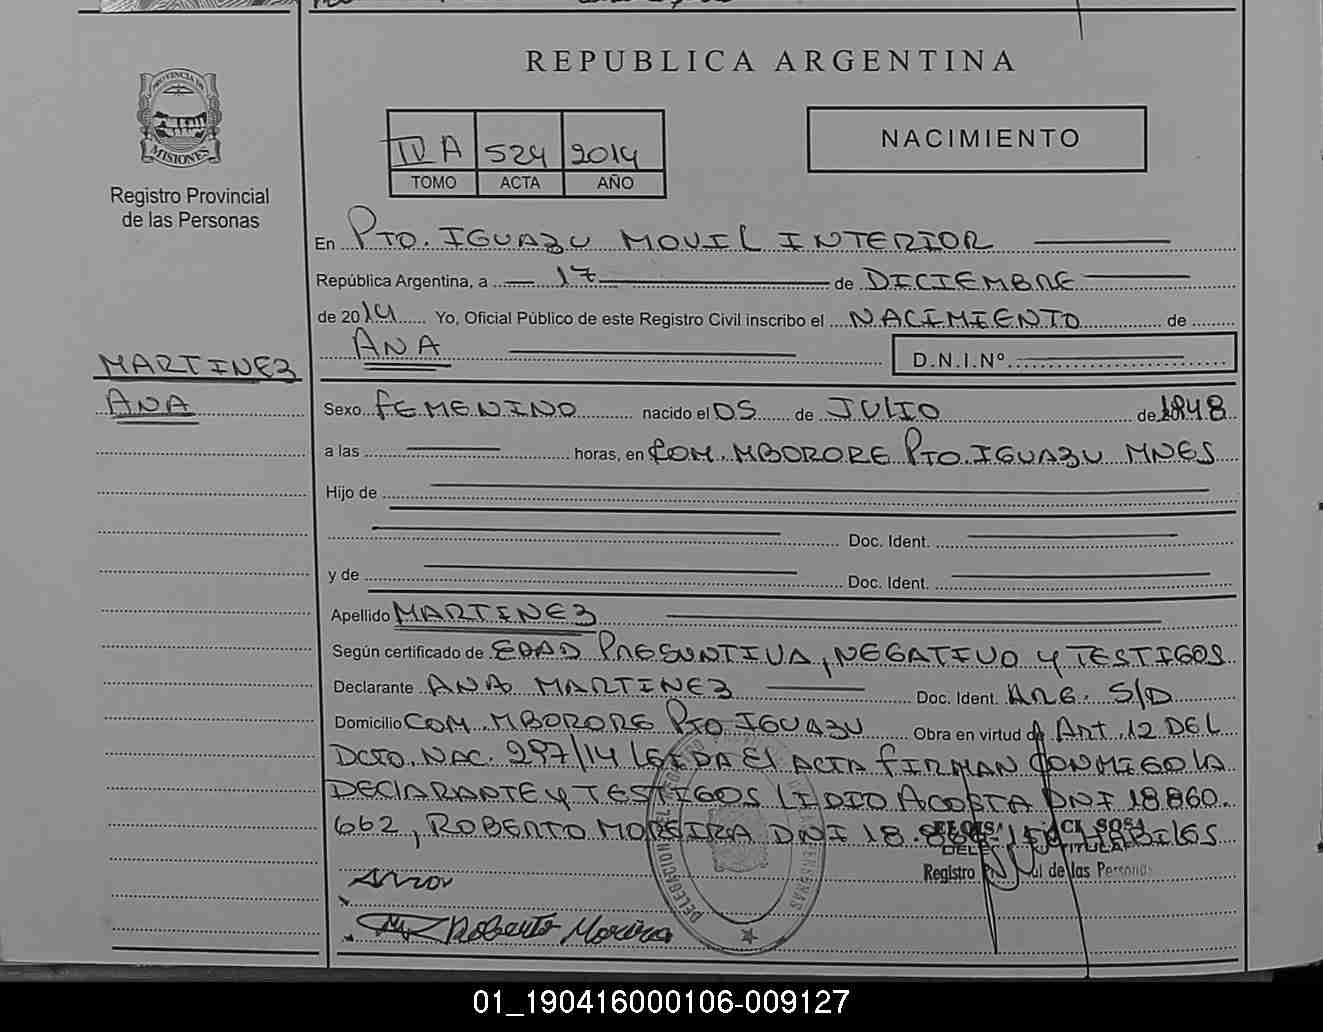 REPUBLICA ARGENTINA
PROVINCIA DE
MISIONES
Registro Provincial
de las Personas
IV A 524 2014
TOMO ACTA AÑO
NACIMIENTO
En PTO. IGUAZU MOVIL INTERIOR
República Argentina, a 17 de DICIEMBRE
de 2014 Yo, Oficial Público de este Registro Civil inscribo el NACIMIENTO de
ANA D.N.I.Nº
MARTINEZ
ANA
Sexo FEMENINO nacido el 05 de JULIO de 1848
a las horas, en COM. MBORORE PTO. IGUAZU MNES
Hijo de
Doc. Ident.
y de Doc. Ident.
Apellido MARTINEZ
Según certificado de EDAD PRESUNTIVA, NEGATIVO Y TESTIGOS
Declarante ANA MARTINEZ Doc. Ident. ARG. S/D
Domicilio COM. MBORORE PTO IGUAZU Obra en virtud de ART. 12 DEL
DCTO. NAC. 297/14 LEIDA EL ACTA FIRMAN CONMIGO LA
DECLARANTE Y TESTIGOS LIDIO ACOSTA DNI 18.860.
662, ROBERTO MOREIRA DNI 18. HABILES
SOSA
TITULAR
Registro de las Personas
Roberto Moreira
01_190416000106-009127